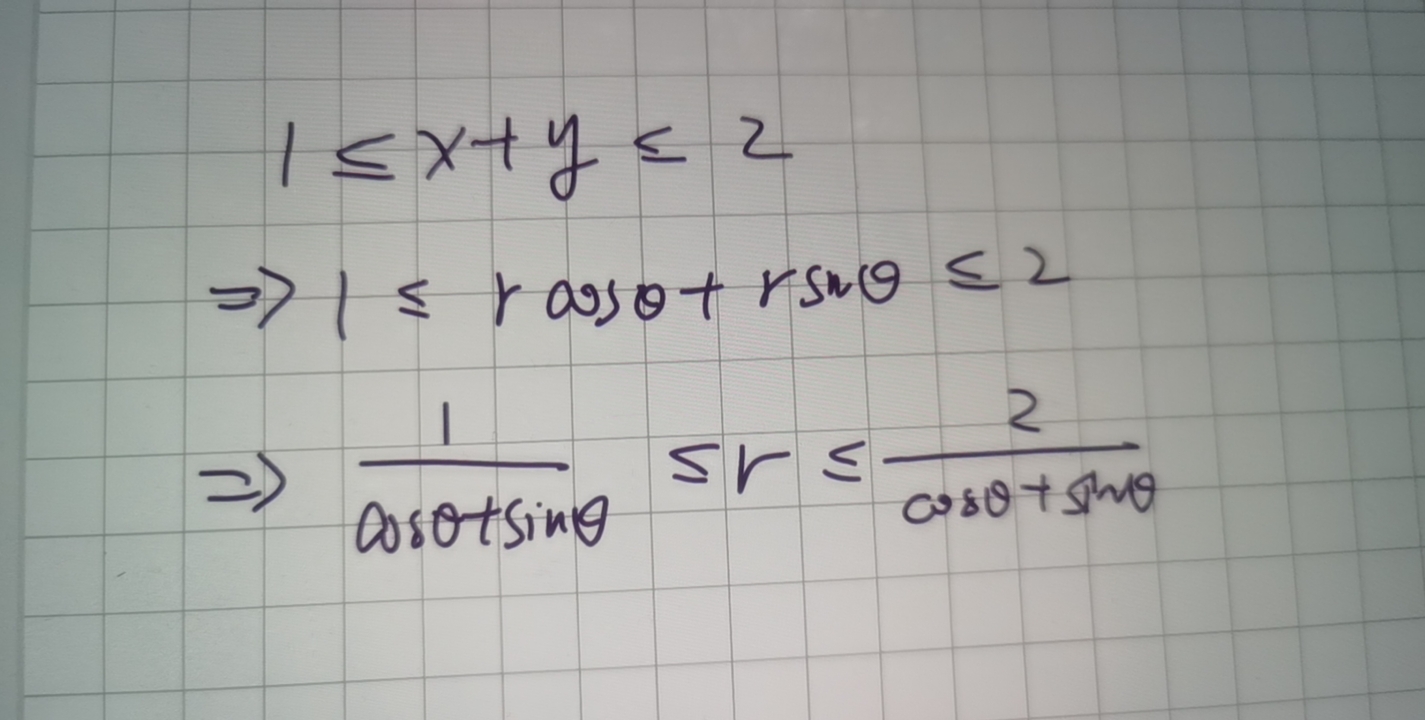 1 ≤ x+y ≤ 2
⇒ 1 ≤ r cosθ + r sinθ ≤ 2
⇒ 1/(cosθ+sinθ) ≤ r ≤ 2/(cosθ+sinθ)